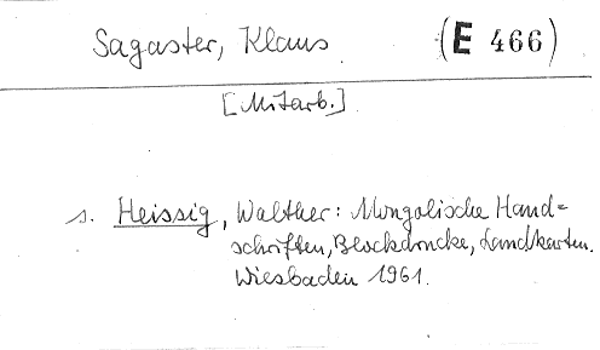 Sagaster, Klaus (E 466)
[Mitarb.]
s. Heissig, Walther: Mongolische Hand=
schriften, Blockdrucke, Landkarten.
Wiesbaden 1961.